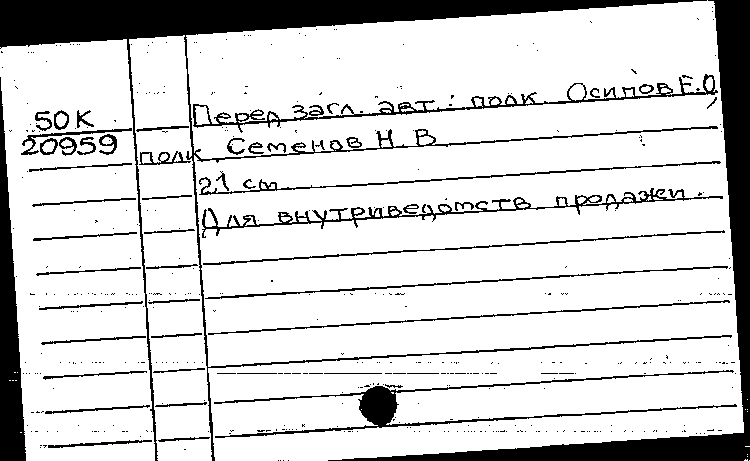 50К
20959
Перед загл. авт.: полк. Осипов Е.О,
полк. Семенов Н.В
21 см
Для внутриведомств. продажи.